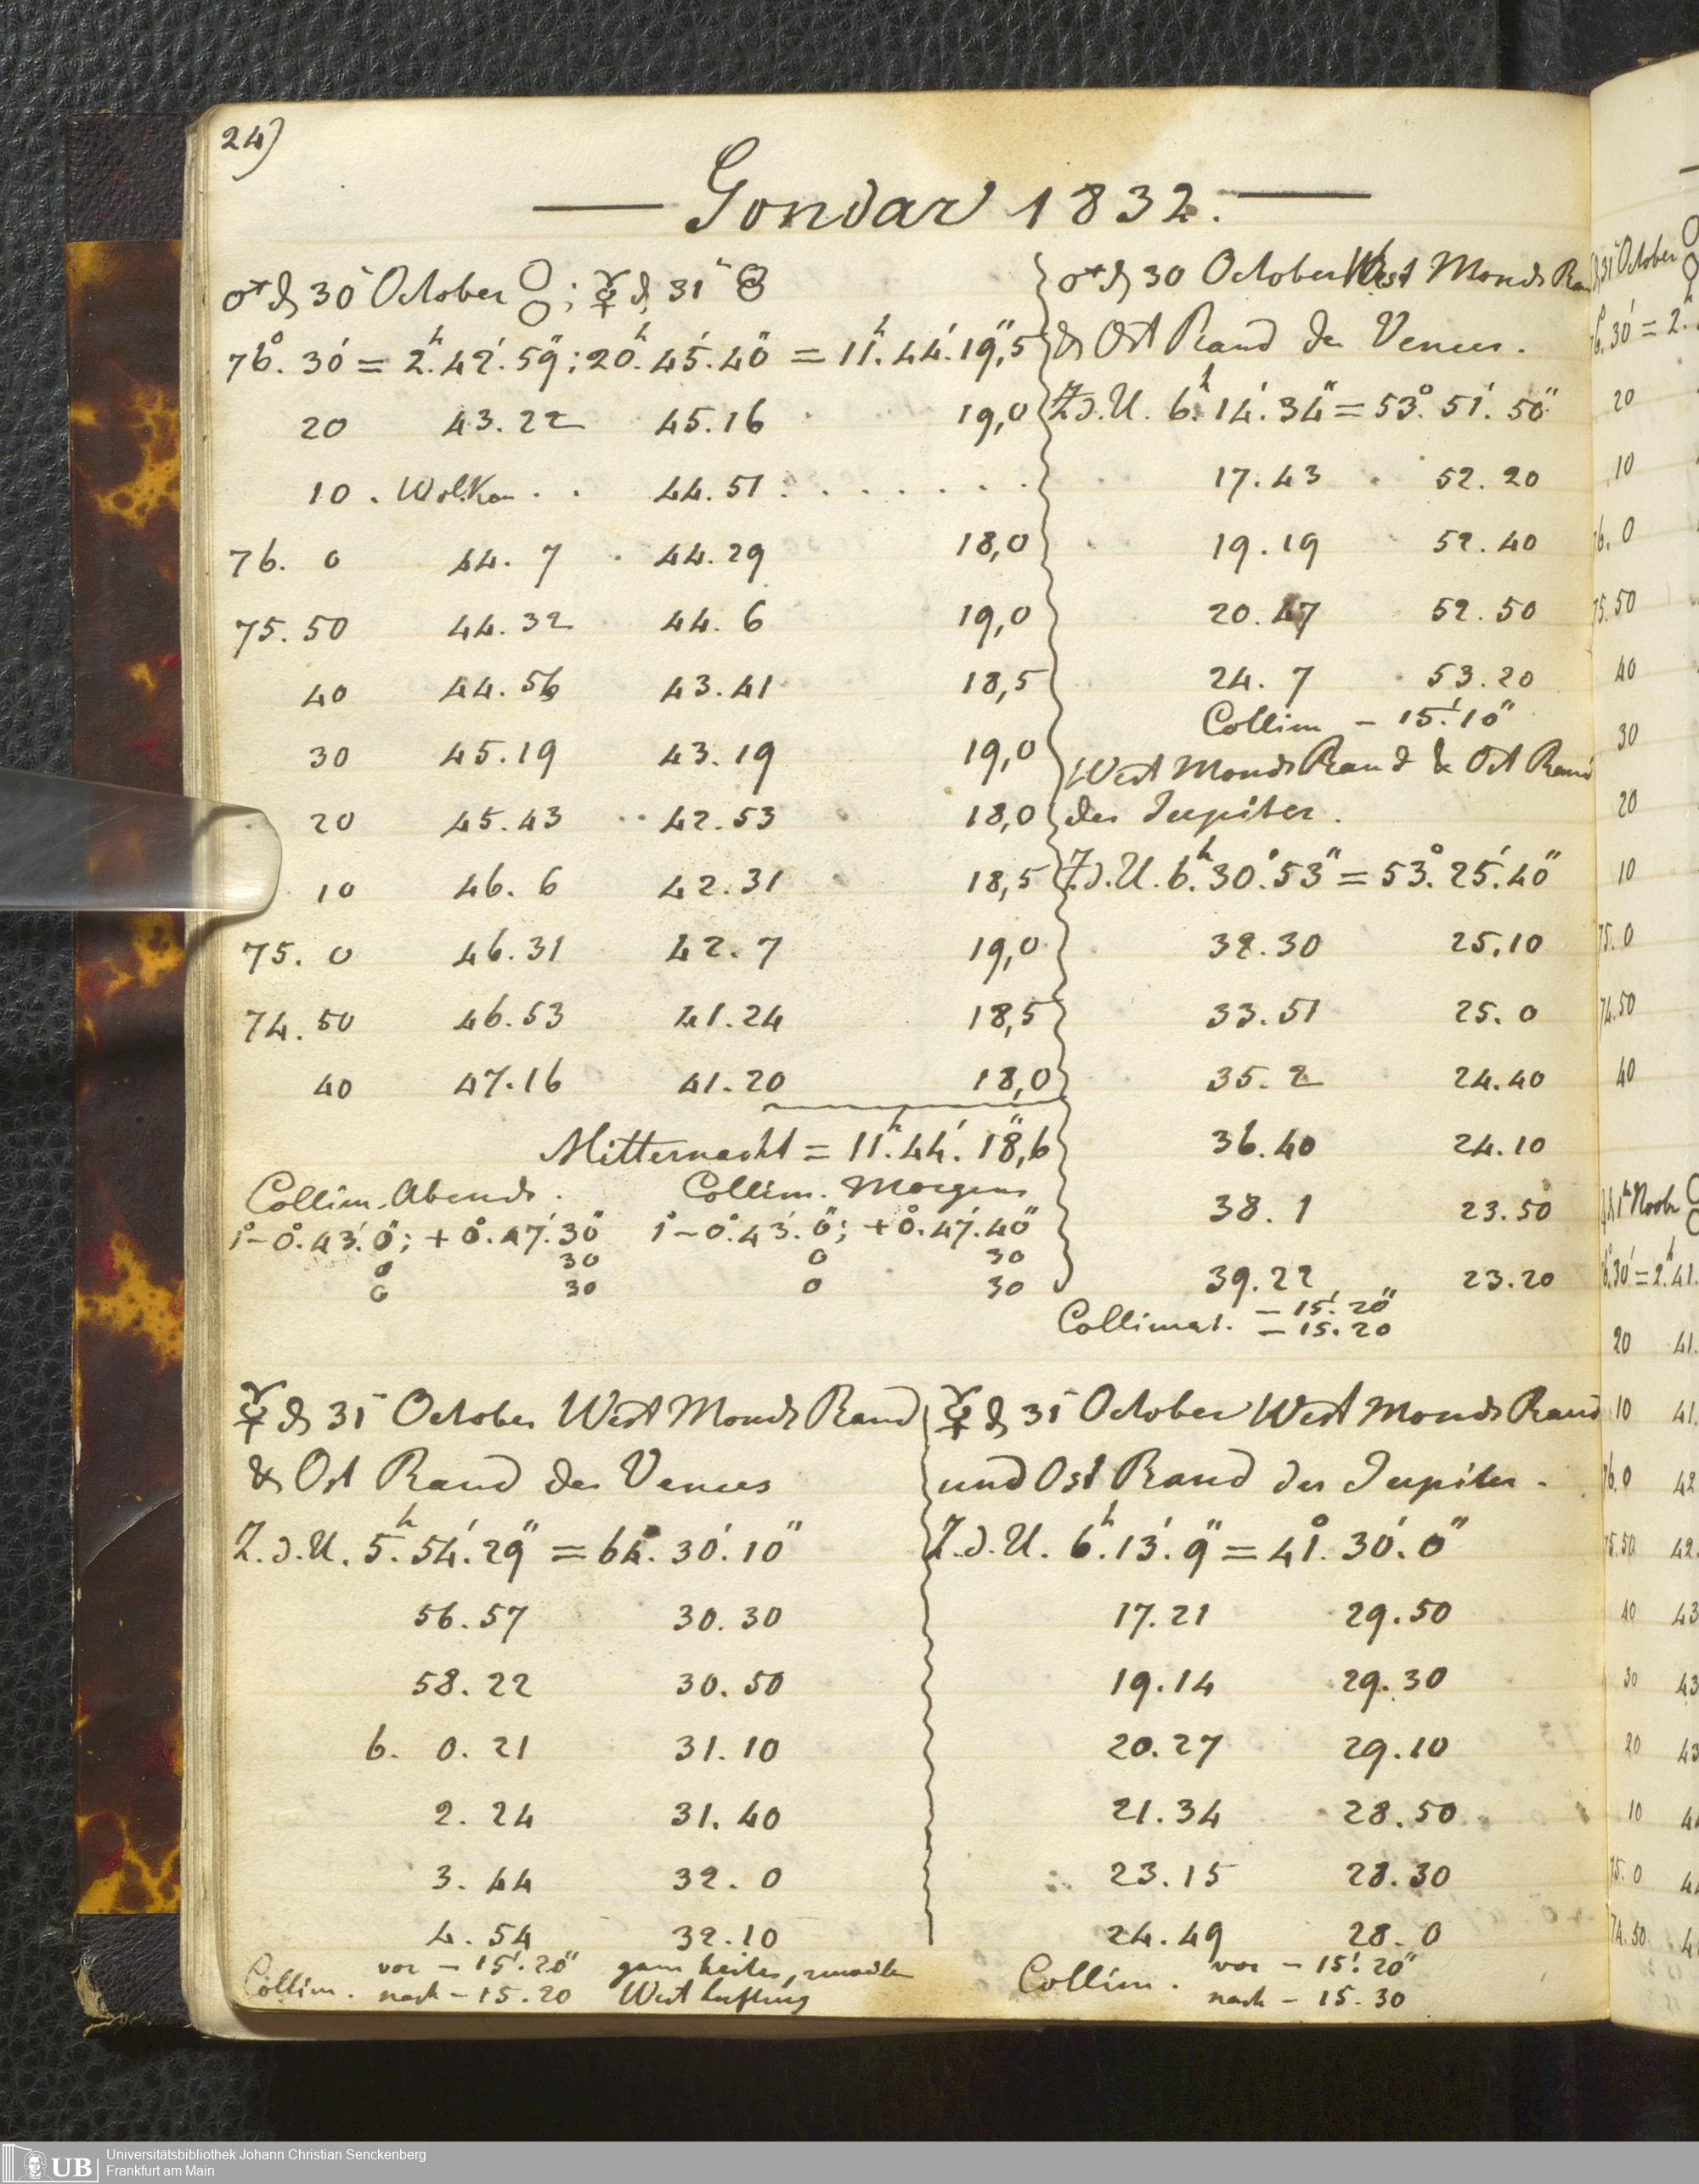 24)
— Gondar 1832. —
♂ d 30 October ; ☿ d 31
76°. 30' = 2h. 42'. 59"; 20h. 45'. 40" = 11h. 44'. 19",5
20 43.22 45.16 19,0
10 . Wolken . . 44.51 . . . . . . . .
76. 0 44. 7 44.29 18,0
75.50 44.32 44. 6 19,0
40 44.56 43.41 18,5
30 45.19 43.19 19,0
20 45.43 42.53 18,0
10 46. 6 42.31 18,5
75. 0 46.31 42. 7 19,0
74.50 46.53 41.24 18,5
40 47.16 41.20 18,0
Mitternacht = 11h. 44'. 18",6
Collim. Abends. Collim. Morgens
1° – 0°. 43'. 0"; + 0°. 47'. 30" 1° – 0°. 43'. 0"; + 0°. 47'. 40"
0 30 0 30
0 30 0 30
♂ d 30 October West Monds Ran
& Ost Rand der Venus.
Z.d.U. 6h. 14'. 34" = 53°. 51'. 50"
17.43 52.20
19.19 52.40
20.47 52.50
24. 7 53.20
Collim – 15'. 10"
West Monds Rand & Ost Rand
des Jupiter.
Z.d.U. 6h. 30'. 53" = 53°. 25'. 40"
32.30 25.10
33.51 25. 0
35. 2 24.40
36.40 24.10
38. 1 23.50
39.22 23.20
Collimat. – 15'. 20"
– 15. 20
☿ d 31 October West Monds Rand
& Ost Rand der Venus
Z.d.U. 5h. 54'. 29" = 64°. 30'. 10"
56.57 30.30
58.22 30.50
6. 0.21 31.10
2.24 31.40
3.44 32. 0
4.54 32.10
Collim. vor – 15'. 20" ganz heiter,
nach – 15. 20 West
☿ d 31 October West Monds Rand
und Ost Rand des Jupiter.
Z.d.U. 6h. 13'. 9" = 41°. 30'. 0"
17.21 29.50
19.14 29.30
20.27 29.10
21.34 28.50
23.15 28.30
24.49 28. 0
Collim. vor – 15'. 20"
nach – 15. 30
31 October
30' = 2h.
20
10
76. 0
75.50
40
30
20
10
75. 0
74.50
40
30' = 2h. 41.
20 41.
10 41.
76.0 42
75.50 42.
40 43
30 43
20 43
10
75. 0
74.50
UB Universitätsbibliothek Johann Christian Senckenberg
Frankfurt am Main